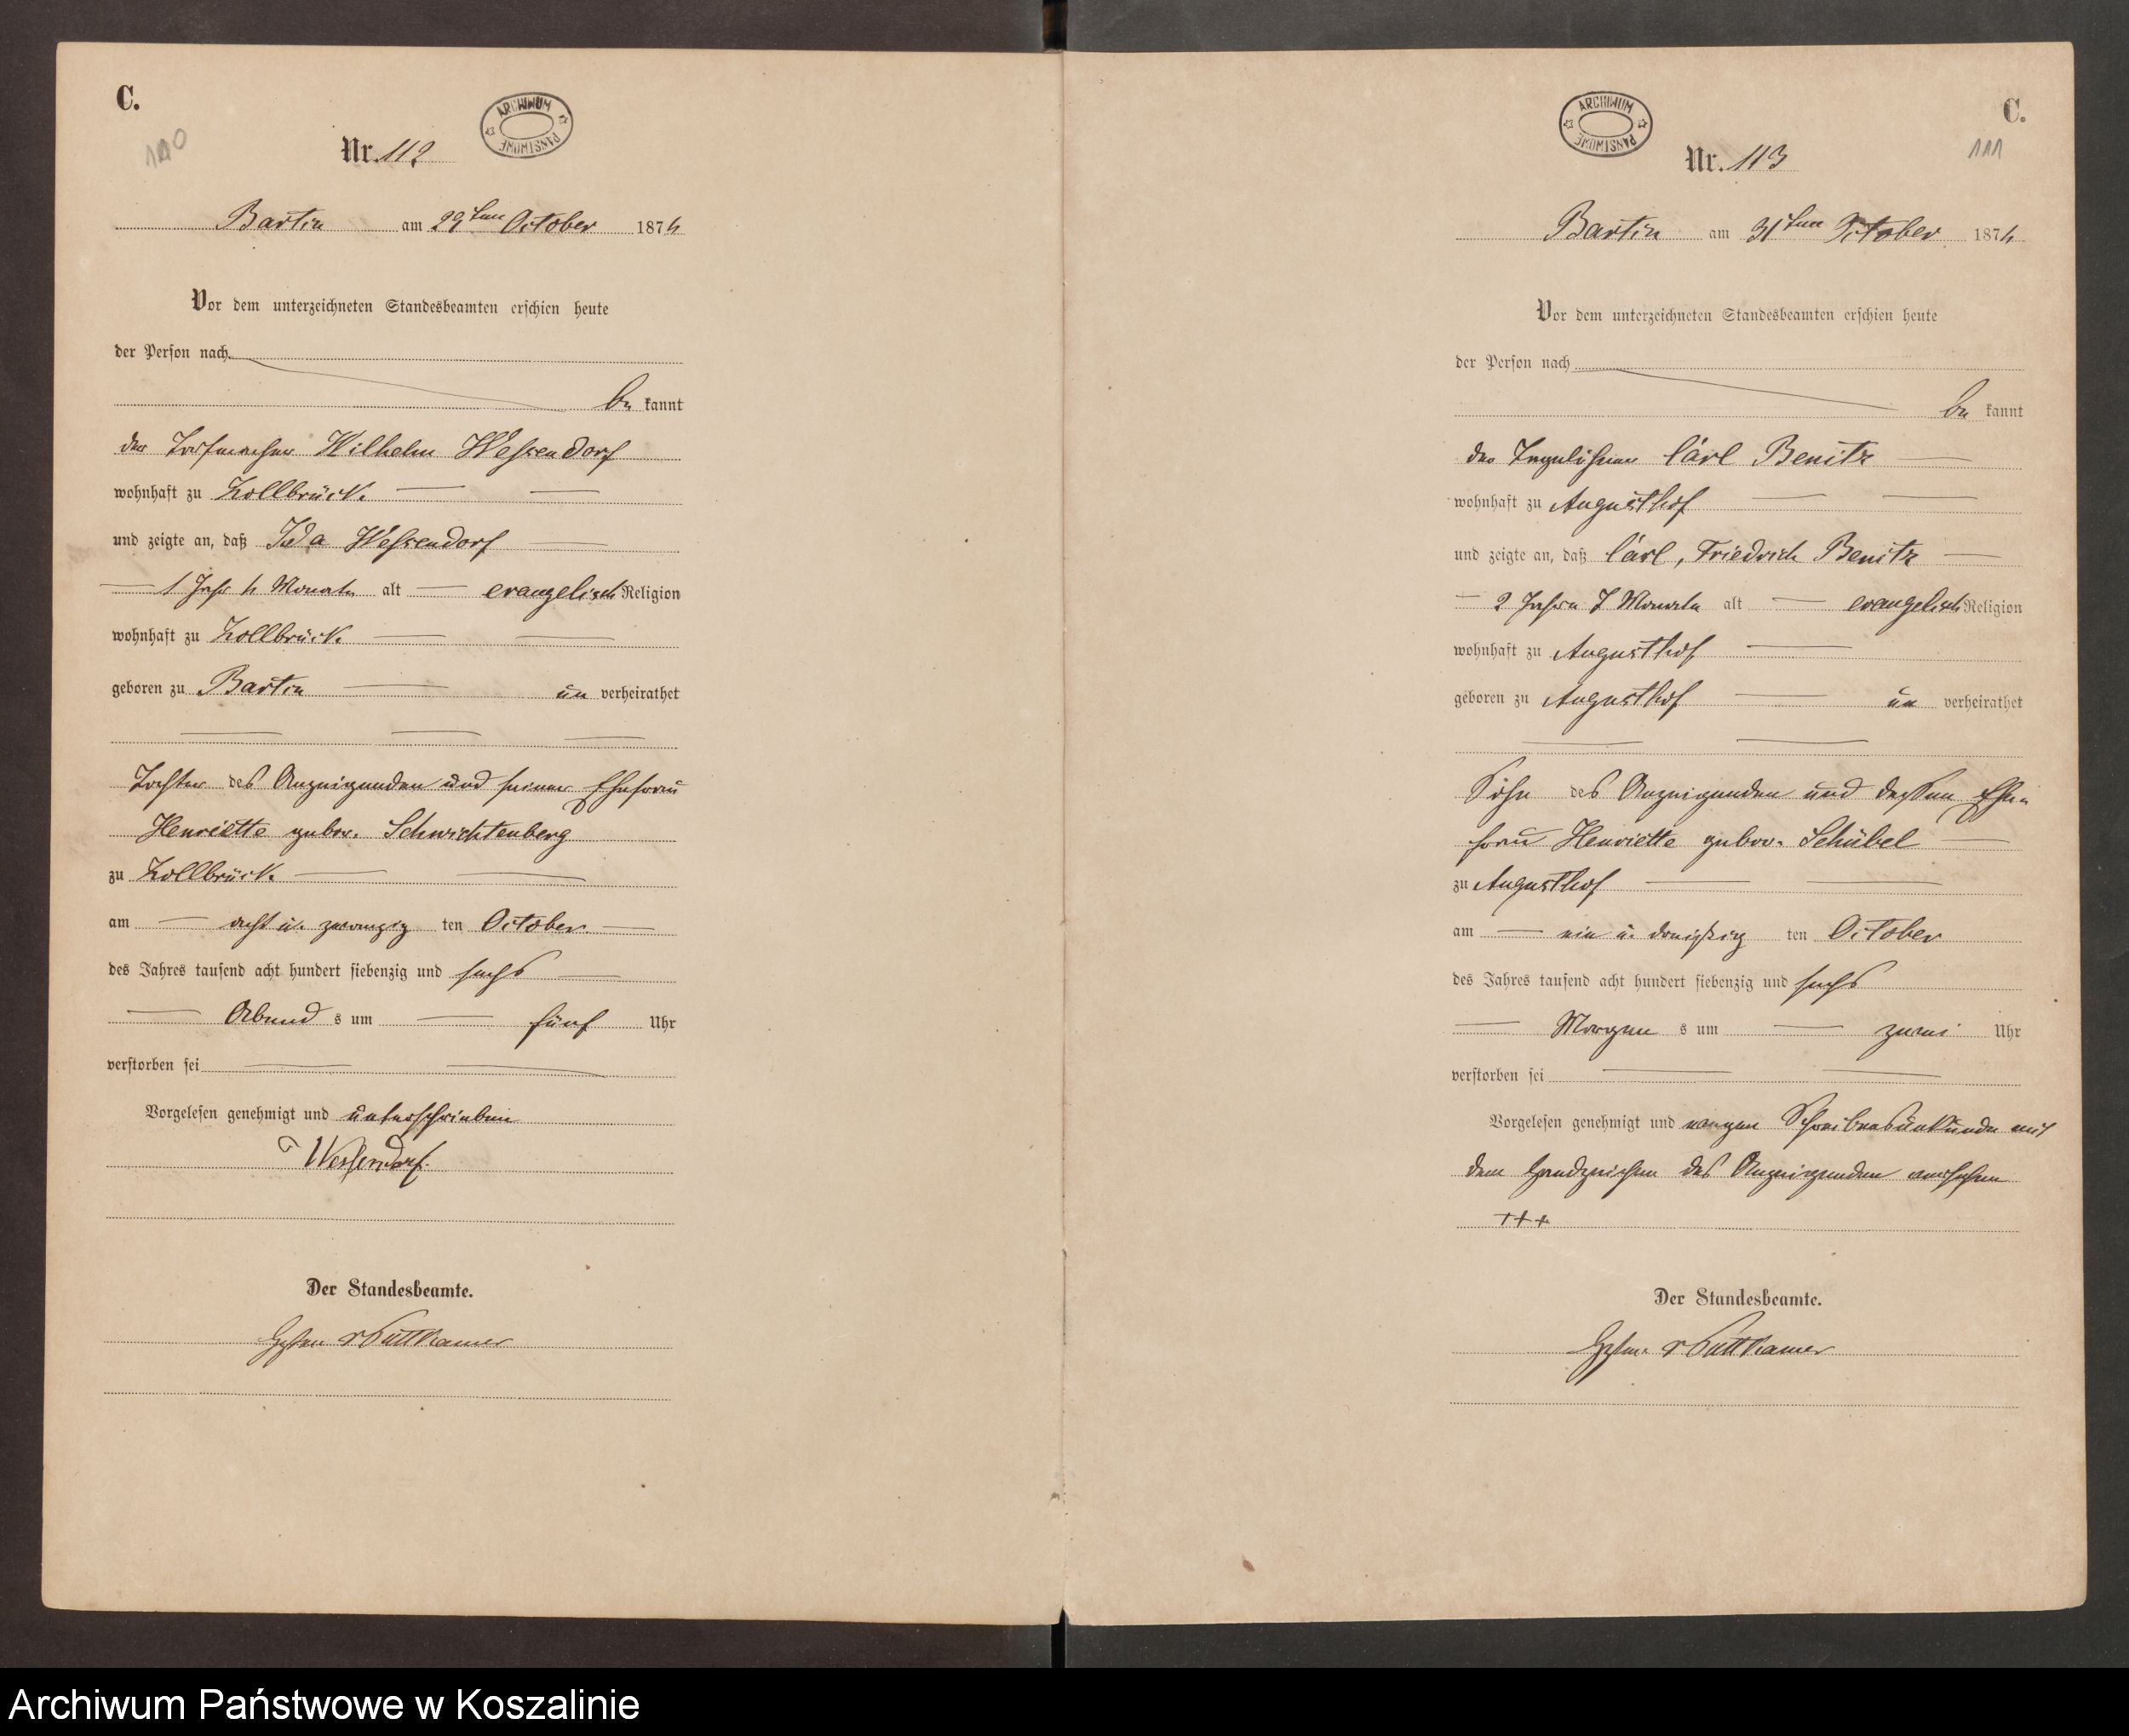 C.
110
ARCHIWUM PAŃSTWOWE
Nr. 112
Bartin am 29ten October 1876
Vor dem unterzeichneten Standesbeamten erschien heute
der Person nach
be kannt
der Wilhelm Wessendorf
wohnhaft zu Zollbrück.
und zeigte an, daß Ida Wessendorf
1 Jahr 4 Monate alt evangelisch Religion
wohnhaft zu Zollbrück.
geboren zu Bartin un verheirathet
Tochter des Anzeigenden und seiner Ehefrau
Henriette gebor. Schwichtenberg
zu Zollbrück.
am acht u. zwanzig ten October.
des Jahres tausend acht hundert siebenzig und sechs
Abend s um fünf Uhr
verstorben sei
Vorgelesen genehmigt und unterschrieben
Wessendorf.
Der Standesbeamte.
v Puttkamer
C.
111
ARCHIWUM PAŃSTWOWE
Nr. 113
Bartin am 31ten October 1876
Vor dem unterzeichneten Standesbeamten erschien heute
der Person nach
be kannt
der Tagelöhner Carl Benitz
wohnhaft zu Augusthof
und zeigte an, daß Carl, Friedrich Benitz
2 Jahre 7 Monate alt evangelisch Religion
wohnhaft zu Augusthof
geboren zu Augusthof un verheirathet
Sohn des Anzeigenden und dessen Ehe-
frau Henriette gebor. Schübel
zu Augusthof
am ein u. dreißig ten October
des Jahres tausend acht hundert siebenzig und sechs
Morgen s um zwei Uhr
verstorben sei
Vorgelesen genehmigt und wegen Schreibensunkunde mit
dem Handzeichen des Anzeigenden versehen
+++
Der Standesbeamte.
v Puttkamer
Archiwum Państwowe w Koszalinie